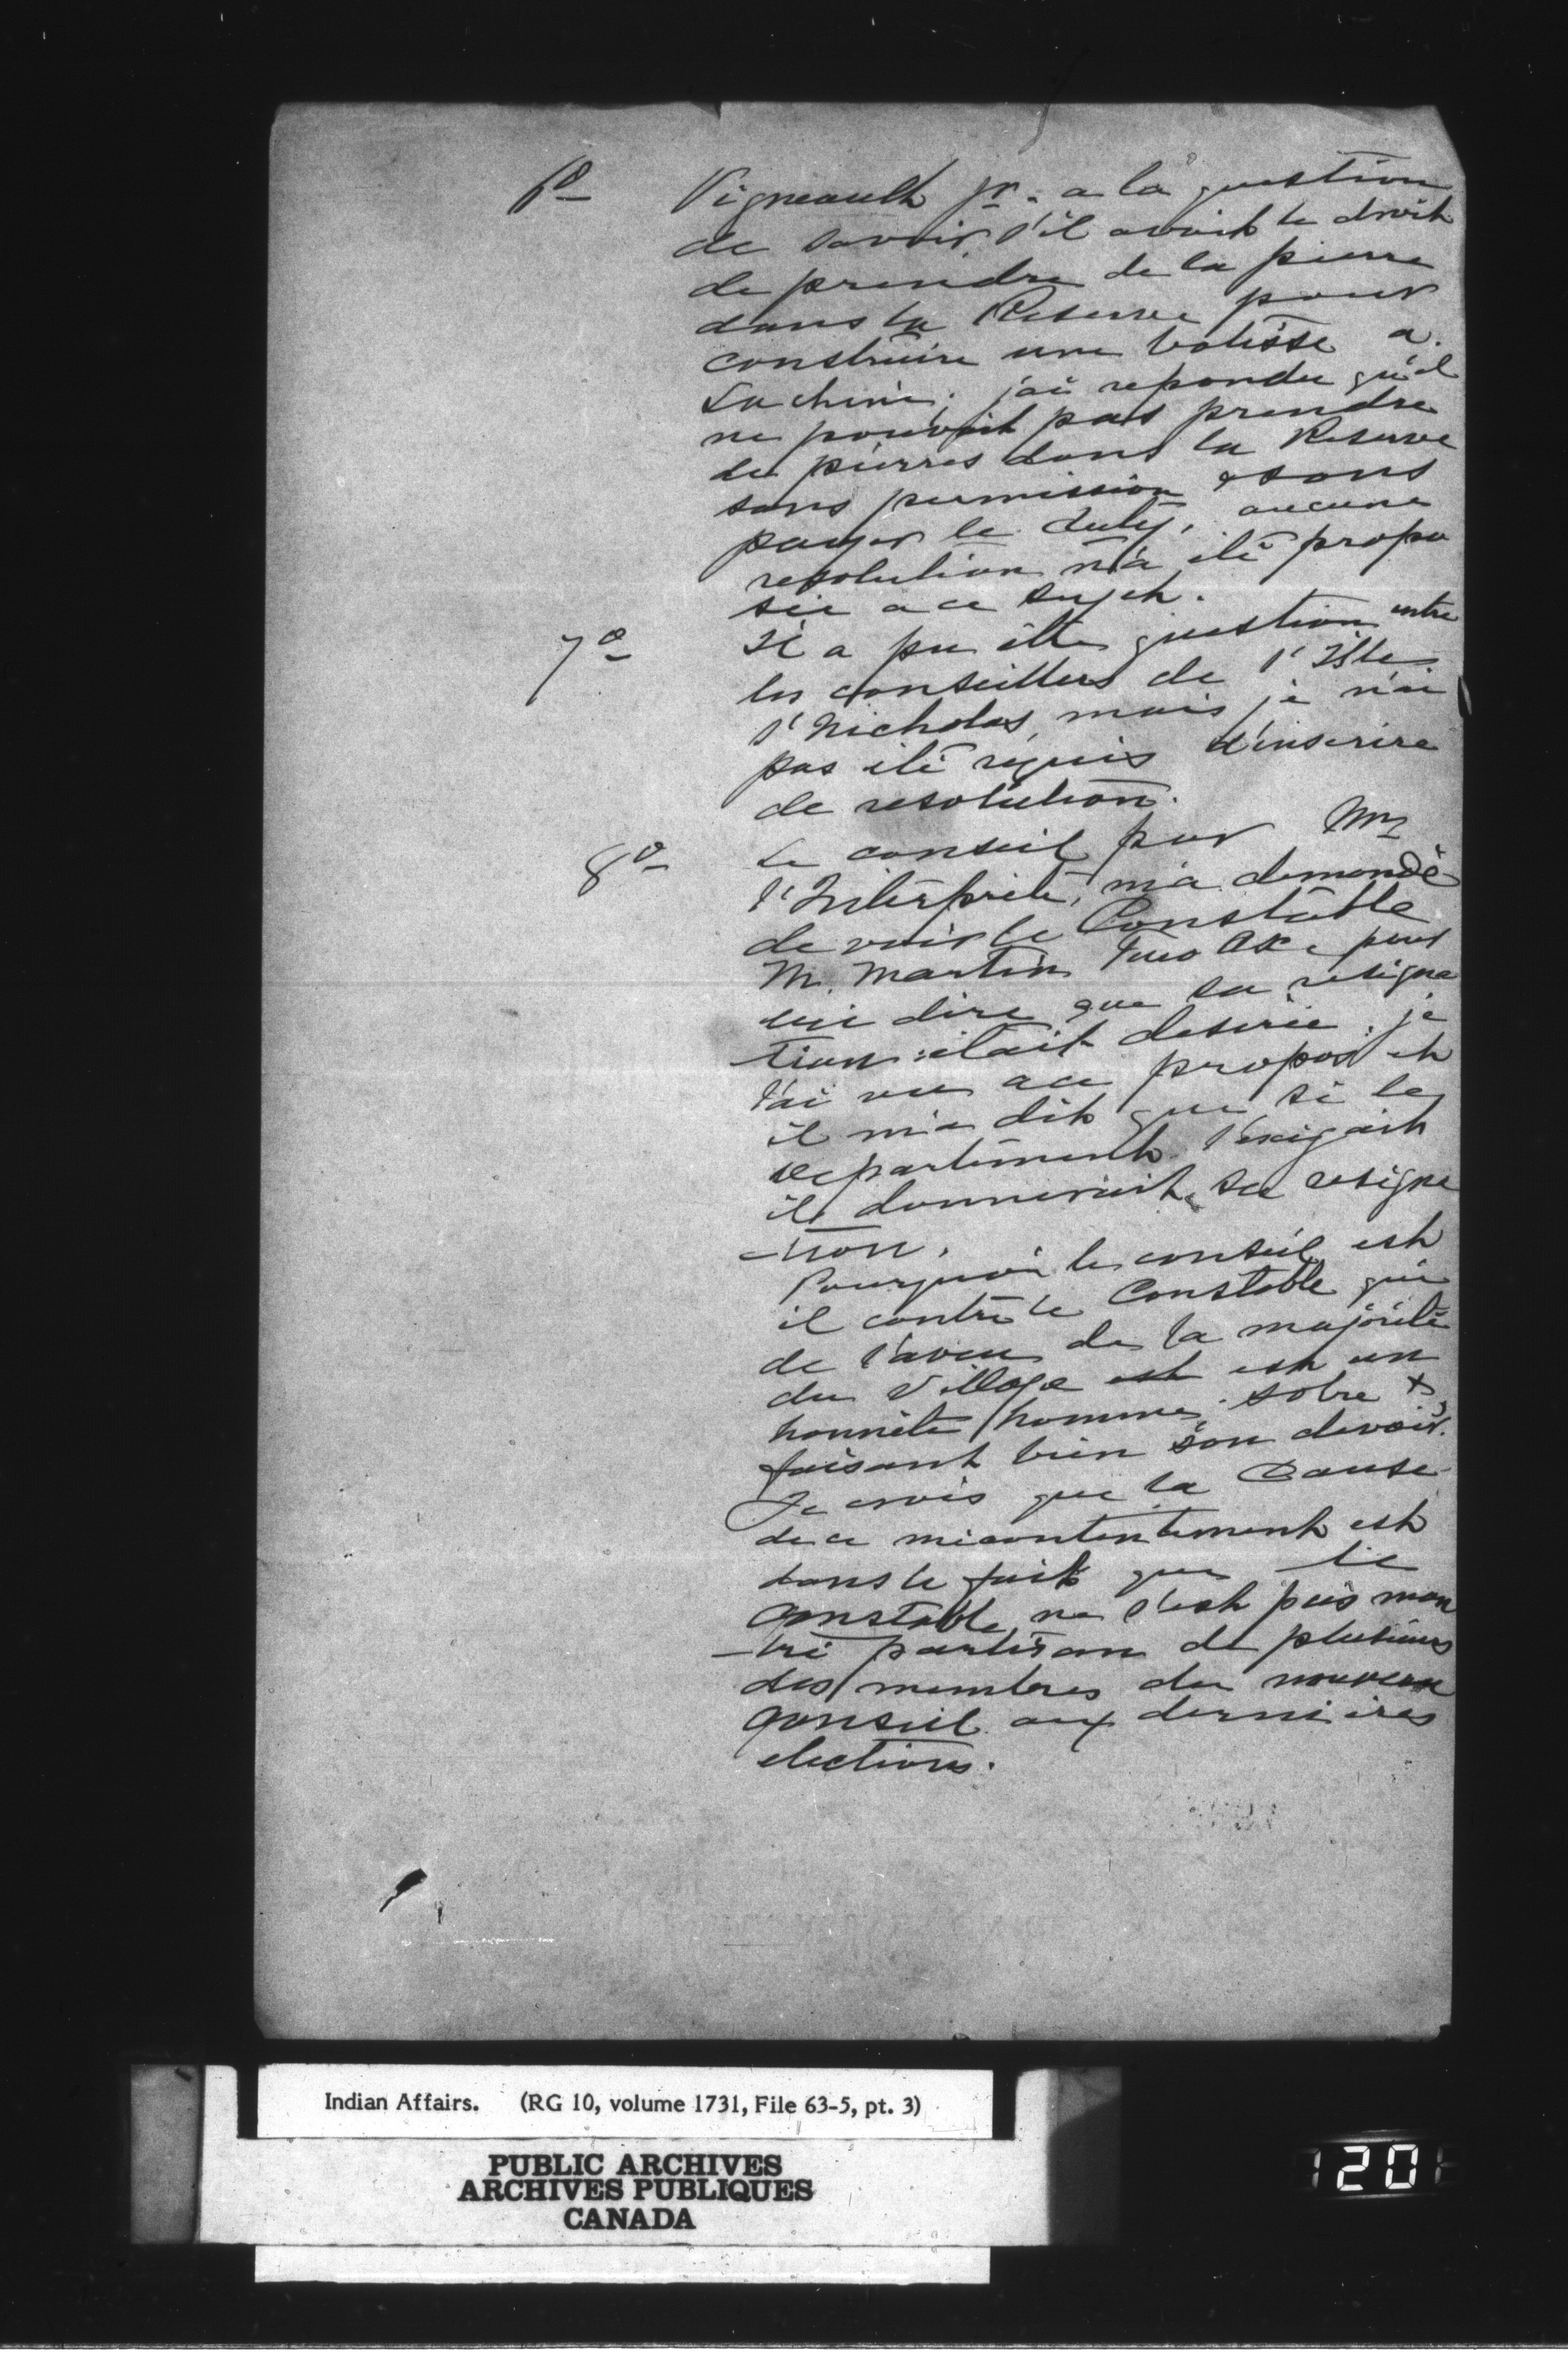 6º Vigneault jr. a la question
de savoir s'il avait le droit
de prendre de la pierre
dans la Reserve pour
construire une batisse a
Lachine; j'ai repondu qu'il
ne pouvait pas prendre
de pierres dans la Reserve
sans permission & sans
payer le duty, aucune
resolution n'a été propo
sée a ce sujet.
7º Il a pu être question entre
les conseillers de l'Isle
St Nicholas, mais je n'ai
pas été requis d'inscrire
de resolution.
8º Le conseil par Mr
l'Interprete, m'a demandé
de voir le Constable
M. Martin Two Axe pour
lui dire que sa resigna
tion était desirée; je
l'ai vu a ce propos et
il m'a dit que si le
Departement l'exigait
il donnerait sa resigna
-tion.
Pourquoi le conseil est
il contre le Constable qui
de l'aveu de la majorité
du Village est est un
honnête homme, sobre &
faisant bien son devoir.
Je crois que la Cause
de ce mécontentement est
dans le fait que le
Constable ne s'est pas mon
-tré partisan de plusieurs
des membres du nouveau
Conseil aux dernières
elections.
Indian Affairs. (RG 10, volume 1731, File 63-5, pt. 3)
PUBLIC ARCHIVES
ARCHIVES PUBLIQUES
CANADA
20